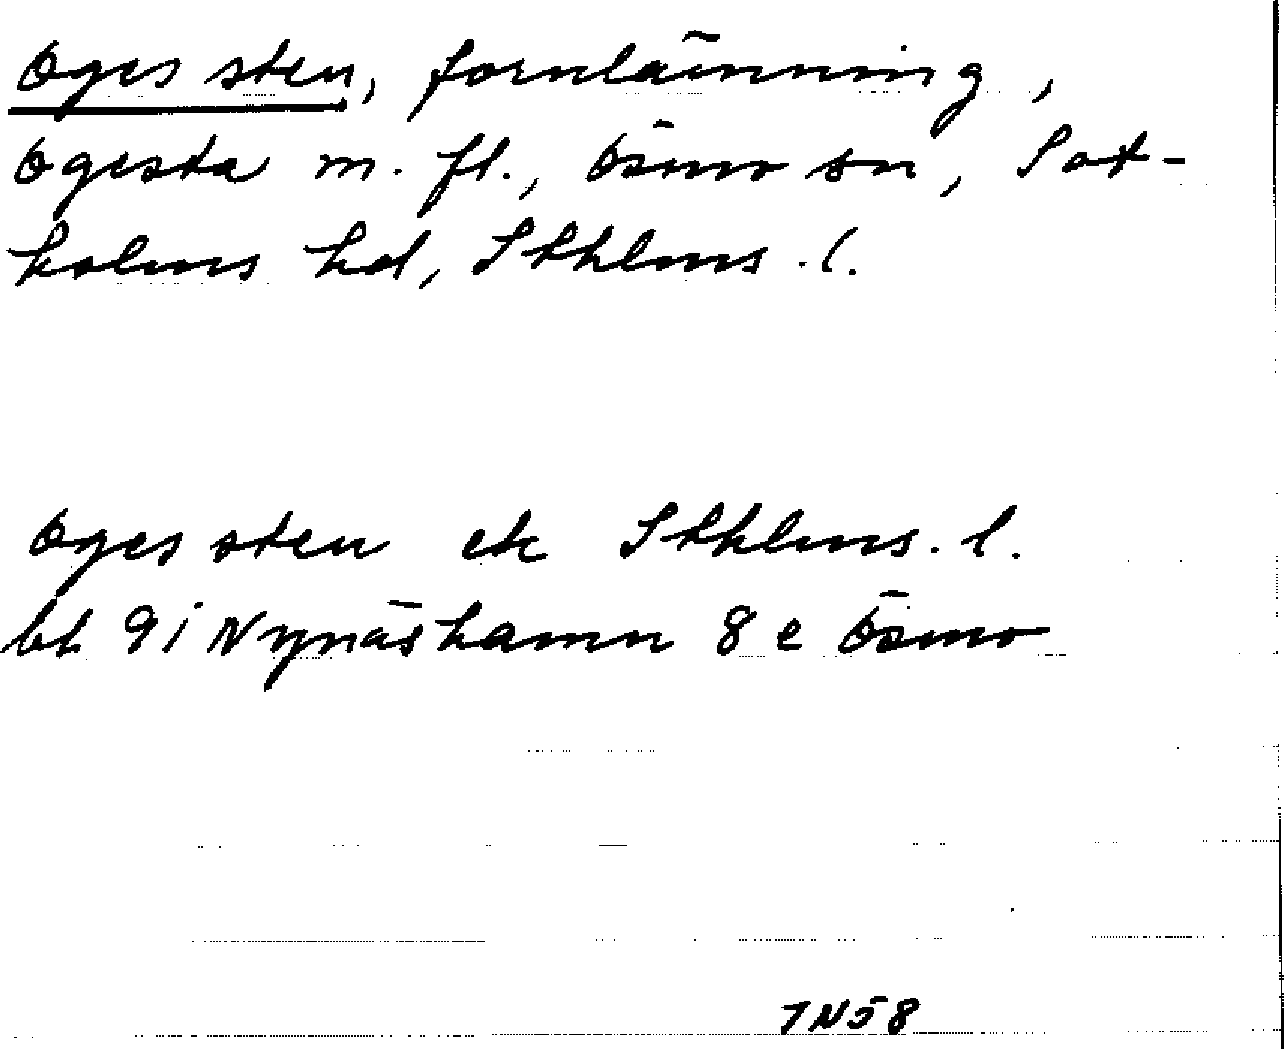 Oges sten, fornlämning,
Ogesta m. fl., Ösmo sn, Sot-
holms hd, Sthlms. l.
Oges sten ek Sthlms. l.
bl 9i Nynäshamn 8 e Ösmo
7N58